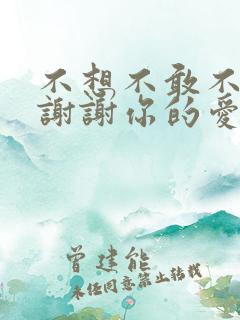 不想不敢不
謝謝你的愛
曾建能
未經同意禁止轉載